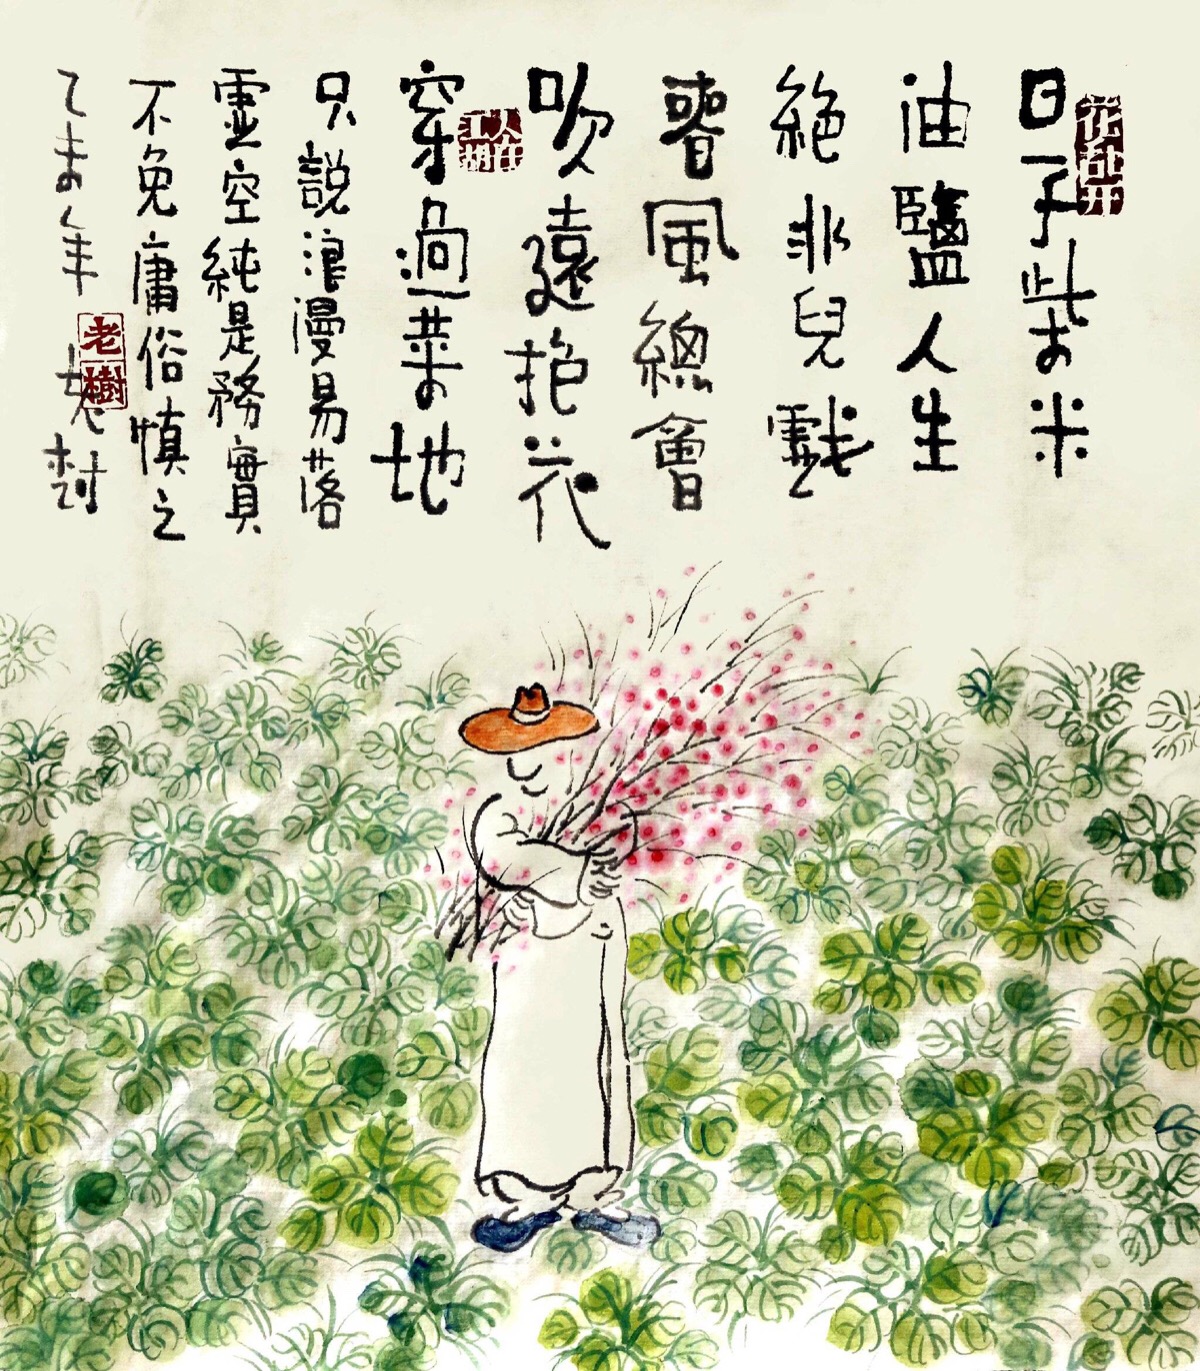 日子柴米
油鹽人生
絕非兒戲
春風總會
吹遠抱花
穿過菜地
只說浪漫易落
虛空純是務實
不免庸俗慎之
乙未年 老樹
花亂開
人在江湖
老樹